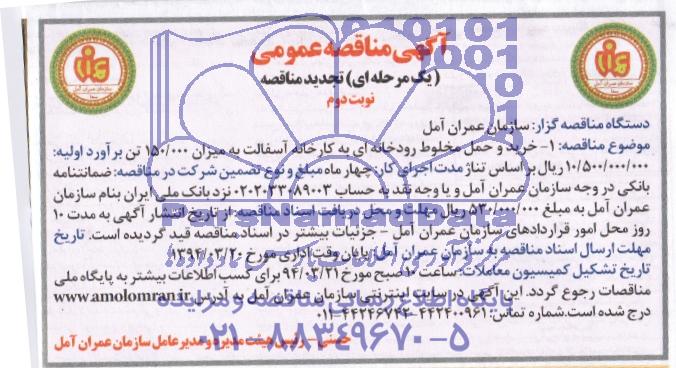 آگهی مناقصه عمومی
(یک مرحله ای) تجدید مناقصه
نوبت دوم
دستگاه مناقصه گزار: سازمان عمران آمل
موضوع مناقصه: ۱- خرید و حمل مخلوط رودخانه ای به کارخانه آسفالت به میزان ۱۵۰/۰۰۰ تن برآورد اولیه:
۱۰/۵۰۰/۰۰۰/۰۰۰ ریال براساس تناژ مدت اجرای کار: چهار ماه مبلغ و نوع تضمین شرکت در مناقصه: ضمانتنامه
بانکی در وجه سازمان عمران آمل و یا وجه نقد به حساب ۰۲۰۲۰۳۳۰۸۹۰۰۳ نزد بانک ملی ایران بنام سازمان
عمران آمل به مبلغ ۵۳۰/۰۰۰/۰۰۰ ریال مهلت و محل دریافت اسناد مناقصه از تاریخ انتشار آگهی به مدت ۱۰
روز محل امور قراردادهای سازمان عمران آمل - جزئیات بیشتر در اسناد مناقصه قید گردیده است. تاریخ
مهلت ارسال اسناد مناقصه به سازمان عمران آمل: پایان وقت اداری مورخ ۱۳۹۴/۰۳/۲۰
تاریخ تشکیل کمیسیون معاملات: ساعت ۱۰ صبح مورخ ۹۴/۰۳/۲۱ برای کسب اطلاعات بیشتر به پایگاه ملی
مناقصات رجوع گردد. این آگهی در سایت اینترنتی سازمان عمران آمل به آدرس www.amolomran.ir
درج شده است. شماره تماس: ۴۴۲۴۰۰۹۶۱-۴۴۲۴۶۷۴۲-۰۱۱
رئیس هیئت مدیره و مدیرعامل سازمان عمران آمل
پایگاه اطلاع رسانی مناقصه و مزایده
۰۲۱-۸۸۳۴۹۶۷۰-۵